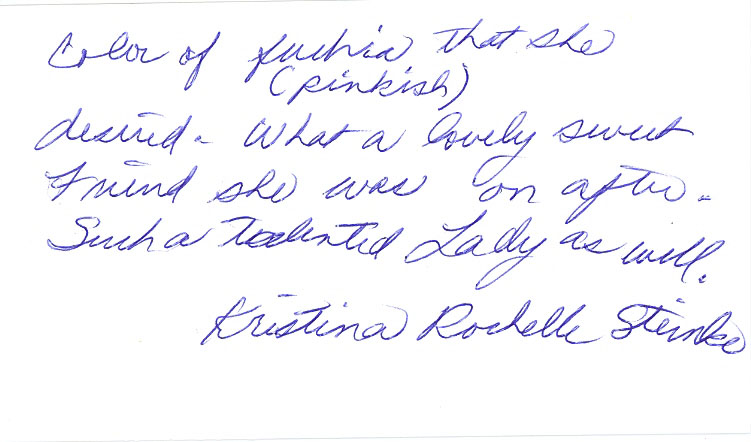 Color of fuchia that she
(pinkish)
desired. What a lovely sweet
Friend she was on after.
Such a Talented Lady as well.
Kristina Rochelle Steinke